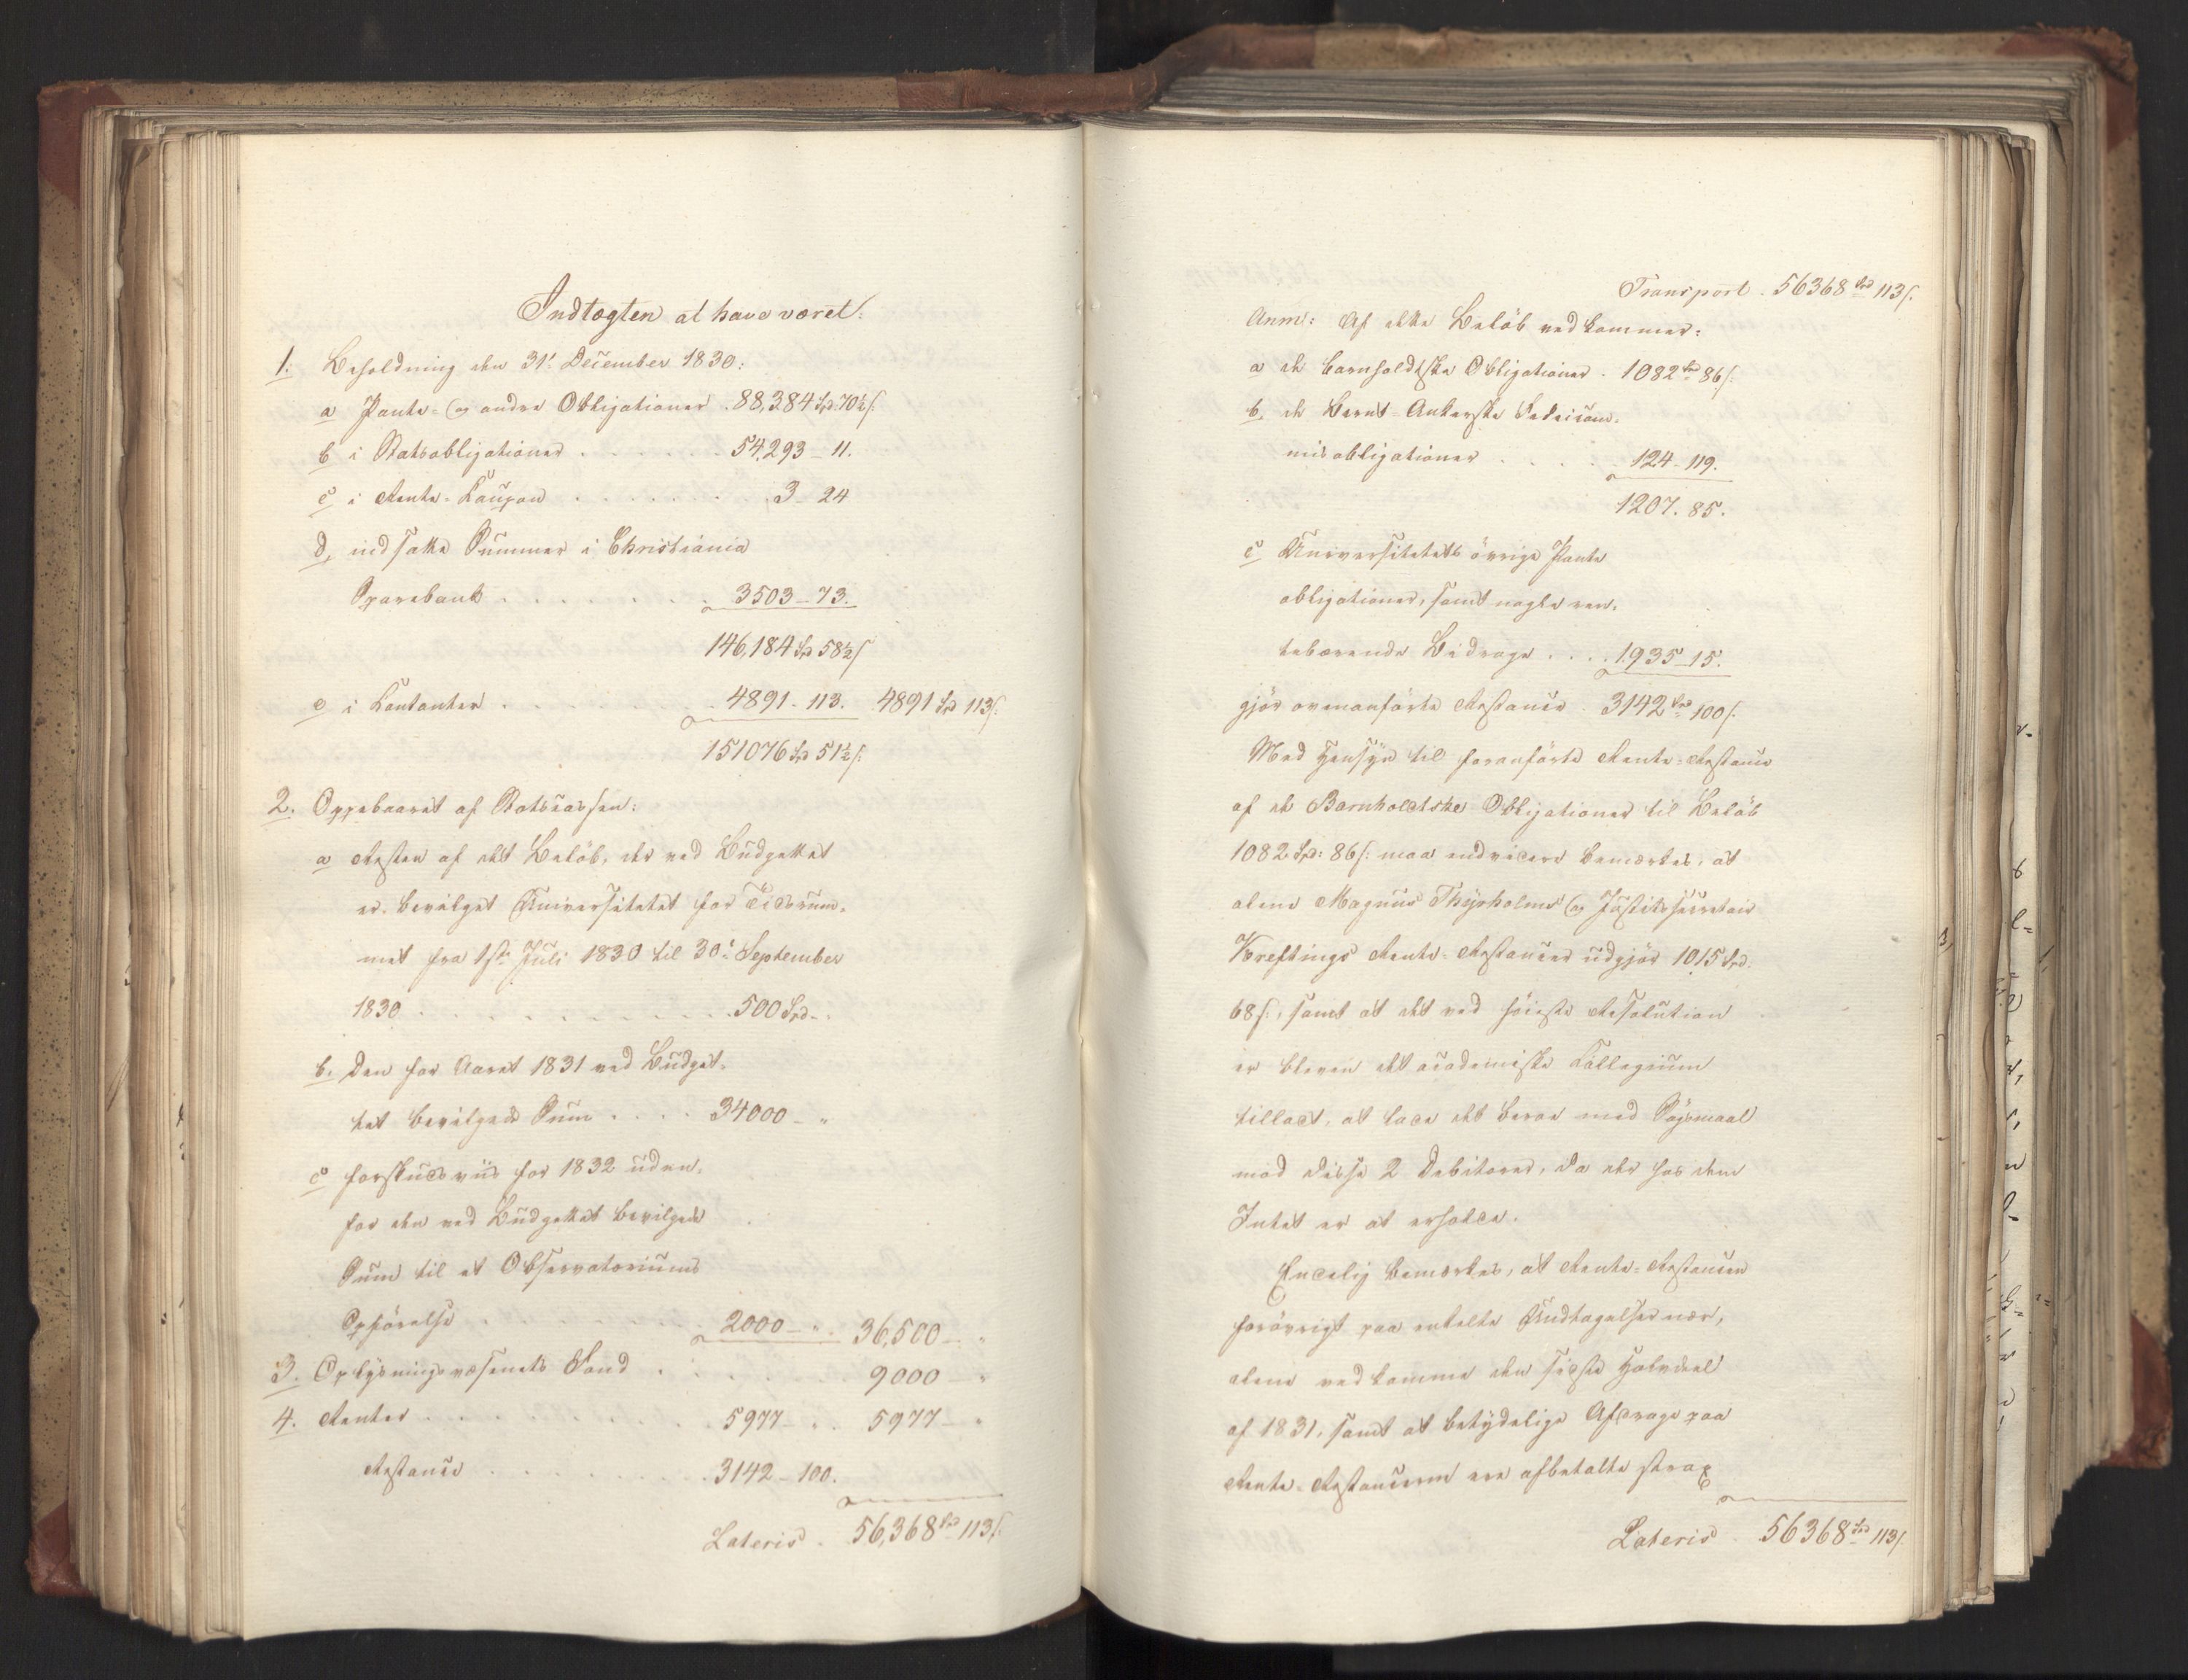 Indtægten at have været:
1. Beholdning den 31' December 1830:
a Pante- og andre Obligationer . 88,384 Spd 70½ s.
b i Statsobligationer . . . . . . 54,293 – 11.
c i Rente-Coupon . . . . . . . . 3 – 24
d, indsatte Summer i Christiania
Sparebank . . . . . . . 3503 – 73.
146,184 Spd 58½ s
e i Contanter . . . . . . 4891 - 113. 4891 Spd 113 s.
151076 Spd 51½ s.
2. Oppebaaret af Statscassen:
a Resten af det Beløb, der ved Budgettet
er bevilget Universitetet for Tidsrum-
met fra 1ste Juli 1830 til 30' September
1830 . . . . . . . . . . . 500 Spd - "
b. Den for Aaret 1831 ved Budget-
tet bevilgede Sum . . . . 34000 – "
c forskudsviis for 1832 uden-
for den ved Budgettet bevilgede
Sum til et Observatoriums
Opførelse . . . . . . . 2000 – " . 36,500 – "
3. Oplysningsvæsenets Fond . . . . . . 9000 – "
4. Renter . . . . . . . . . . 5977 – " . 5977 – "
Restance . . . . . . . . . 3142 – 100.
Lateris . 56,368 Spd 113 s.
Transport . 56368 Spd 113 s.
Anm: Af dette Beløb vedkommer:
a de Barnholdtske Obligationer . 1082 Spd 86 s.
b, de Bernt-Ankerske Fedeicom-
misobligationer . . . . . 124 - 119.
1207. 85.
c Universitetets øvrige Pante
obligationer, samt nogle ren-
tebærende Bidrage . . . . 1935 – 15.
gjør ovenanførte Restance . 3142 Spd 100 s.
Med Hensyn til foranførte Rente-Restance
af de Barnholdtske Obligationer til Beløb
1082 Spd: 86 s: maa endvidere bemærkes, at
alene Magnus Thyrholms og Justitssecretair
Kreftings Rente-Restancer udgjør 1015 Spd.
68 s:, samt at det ved høieste Resolution
er bleven det academiske Collegium
tilladt, at lade det beroe med Søgsmaal
mod disse 2 Debitorer, da der hos dem
Intet er at erholde.
Endelig bemærkes, at Rente-Restancen
forøvrigt paa enkelte Undtagelser nær,
alene vedkomme den sidste Halvdeel
af 1831, samt at betydelige Afdrage paa
Rente-Restancerne ere afbetalte strax
Lateris . 56368 Spd 113 s.